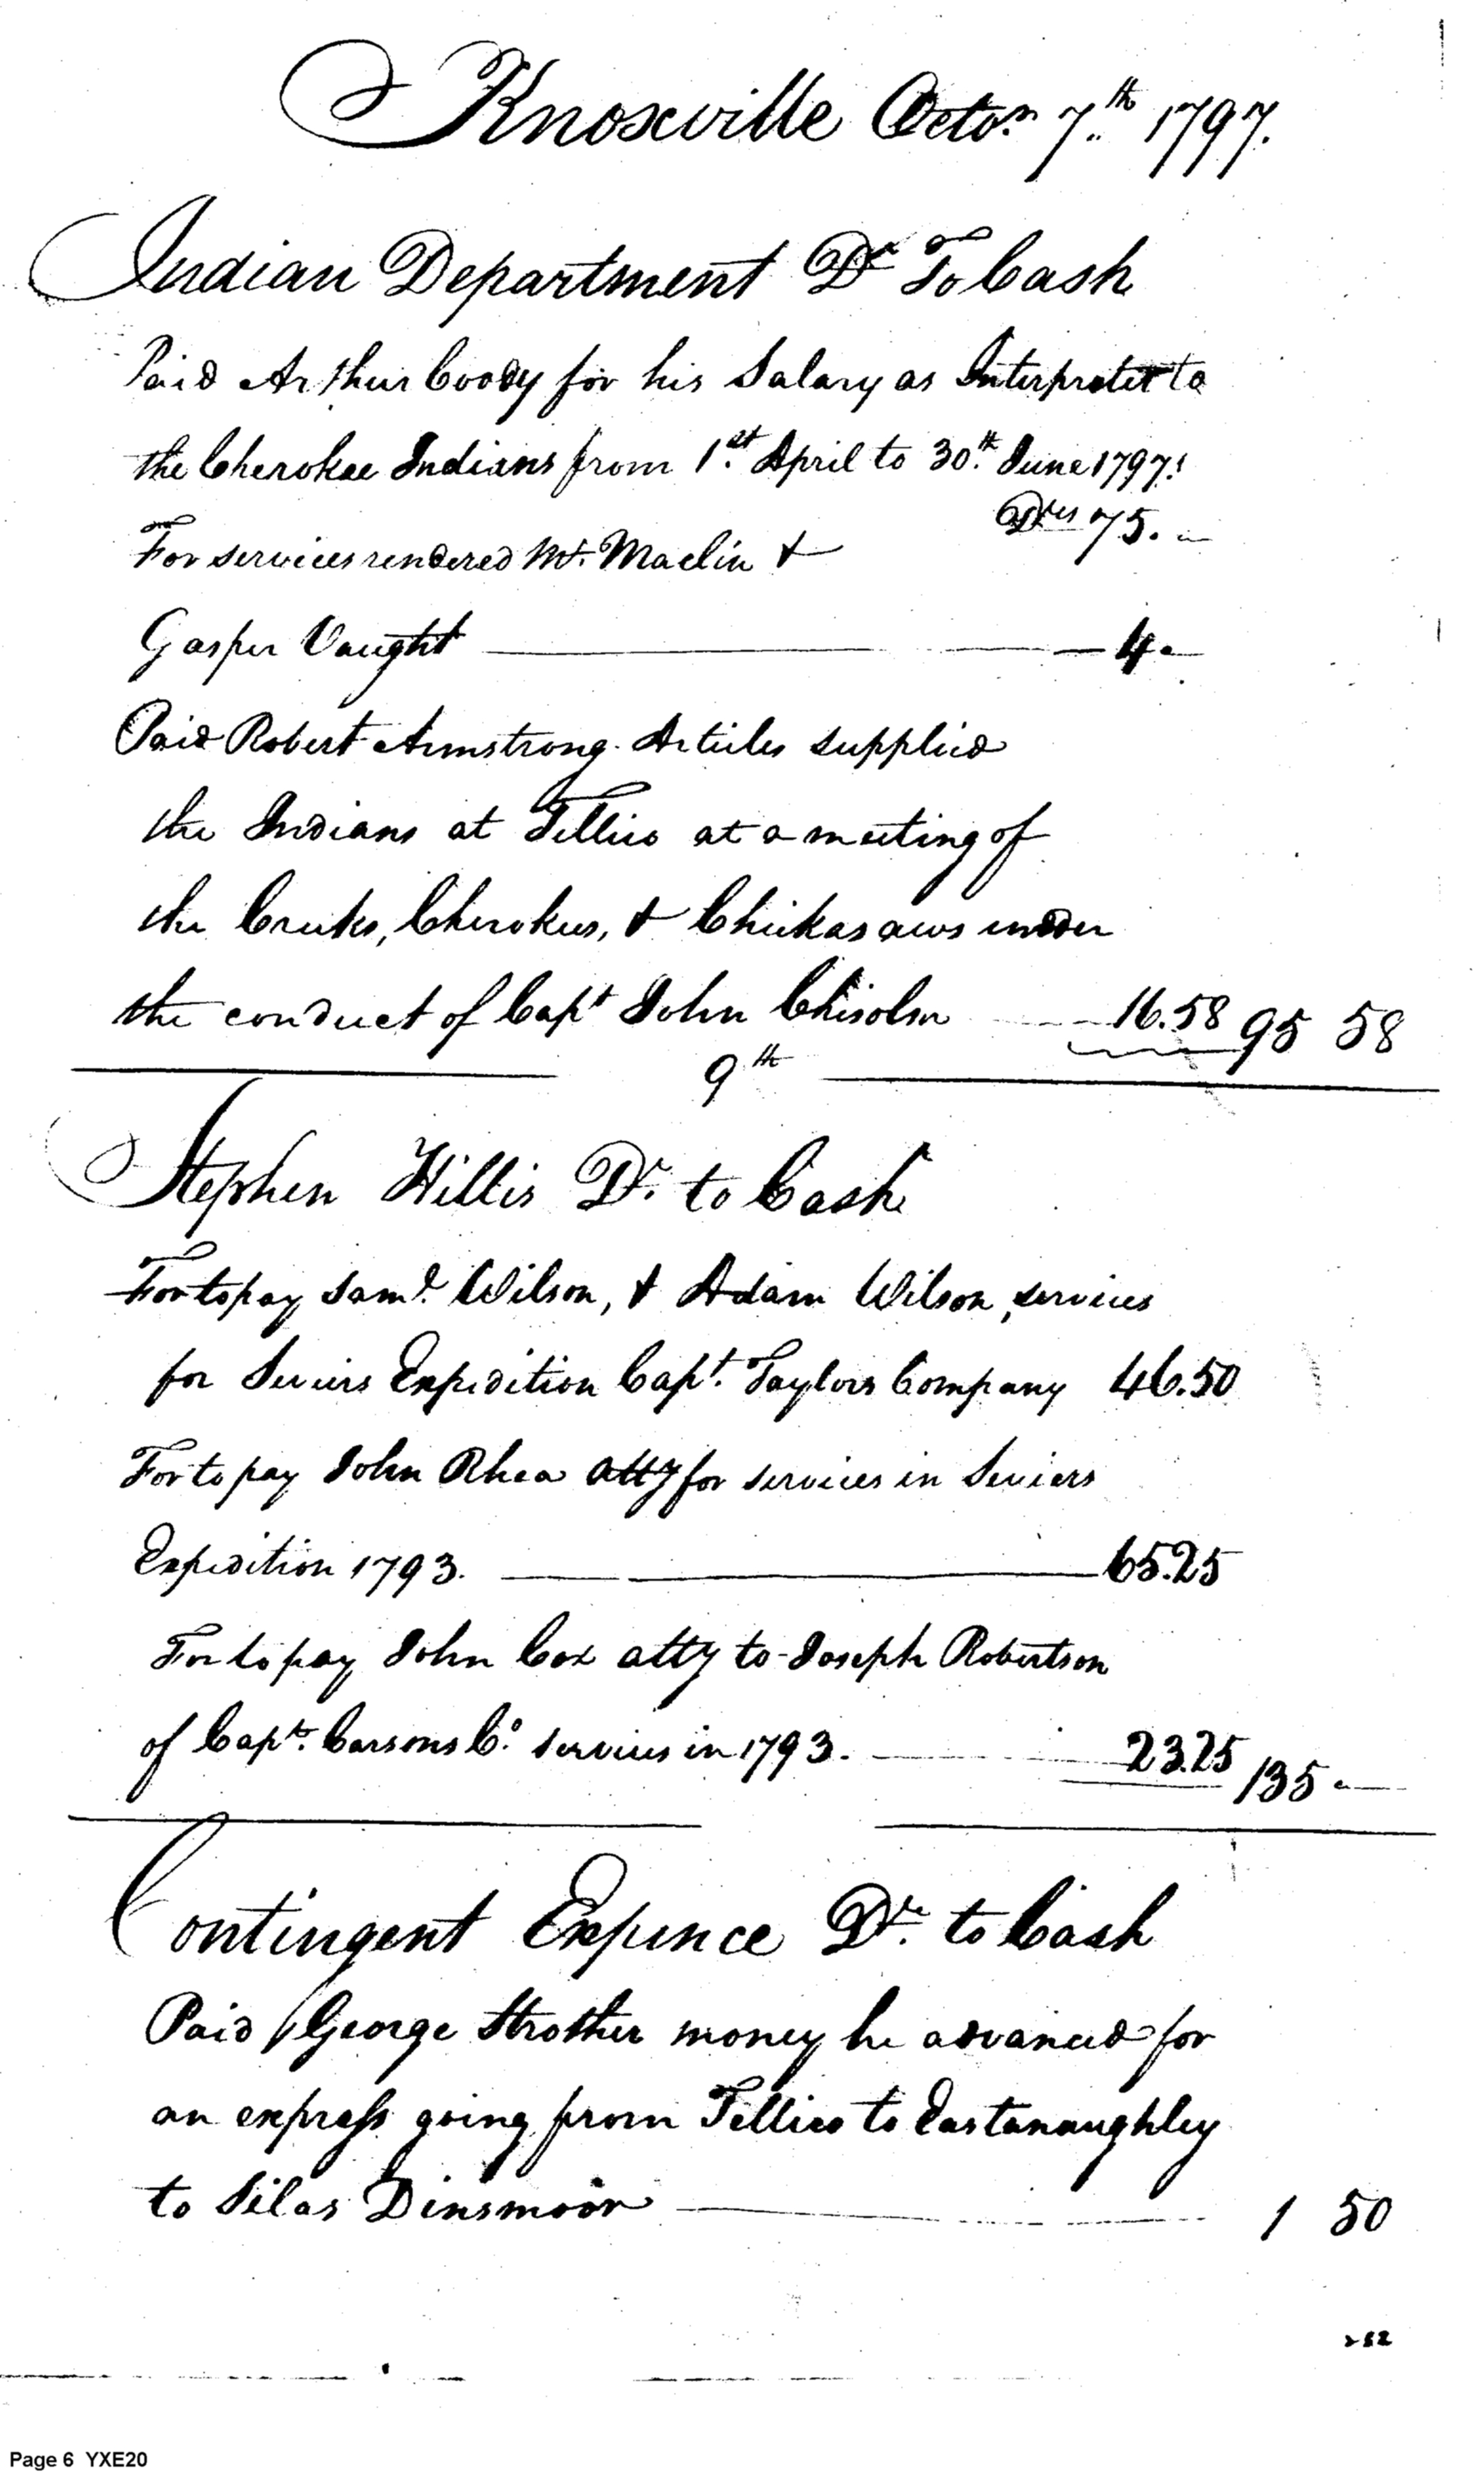 Knoxville Octor. 7th. 1797.
Indian Department Dr To Cash
Paid Arthur Coody for his Salary as Interpreter to
the Cherokee Indians from 1st. April to 30th. June 1797.
Drs 75. —
For services rendered Mr. Maclin &
Gasper Vaught — 4. —
Paid Robert Armstrong Articles supplied
the Indians at Tellico at a meeting of
the Creeks, Cherokees, & Chickasaws under
the conduct of Capt John Chisolm 16.58 95 58
9th
Stephen Hillis Dr. to Cash
For to pay Saml. Wilson, & Adam Wilson, services
for Seviers Expedition Capt. Taylors Company 46.50
For to pay John Rhea atty for services in Seviers
Expedition 1793. — 65.25
For to pay John Cox atty to Joseph Robertson
of Capt. Carsons Co. services in 1793. — 23.25 135 —
Contingent Expence Dr. to Cash
Paid George Strother money he advanced for
an express going from Tellico to Eastanaughley
to Silas Dinsmoor — 1 50
252
Page 6 YXE20